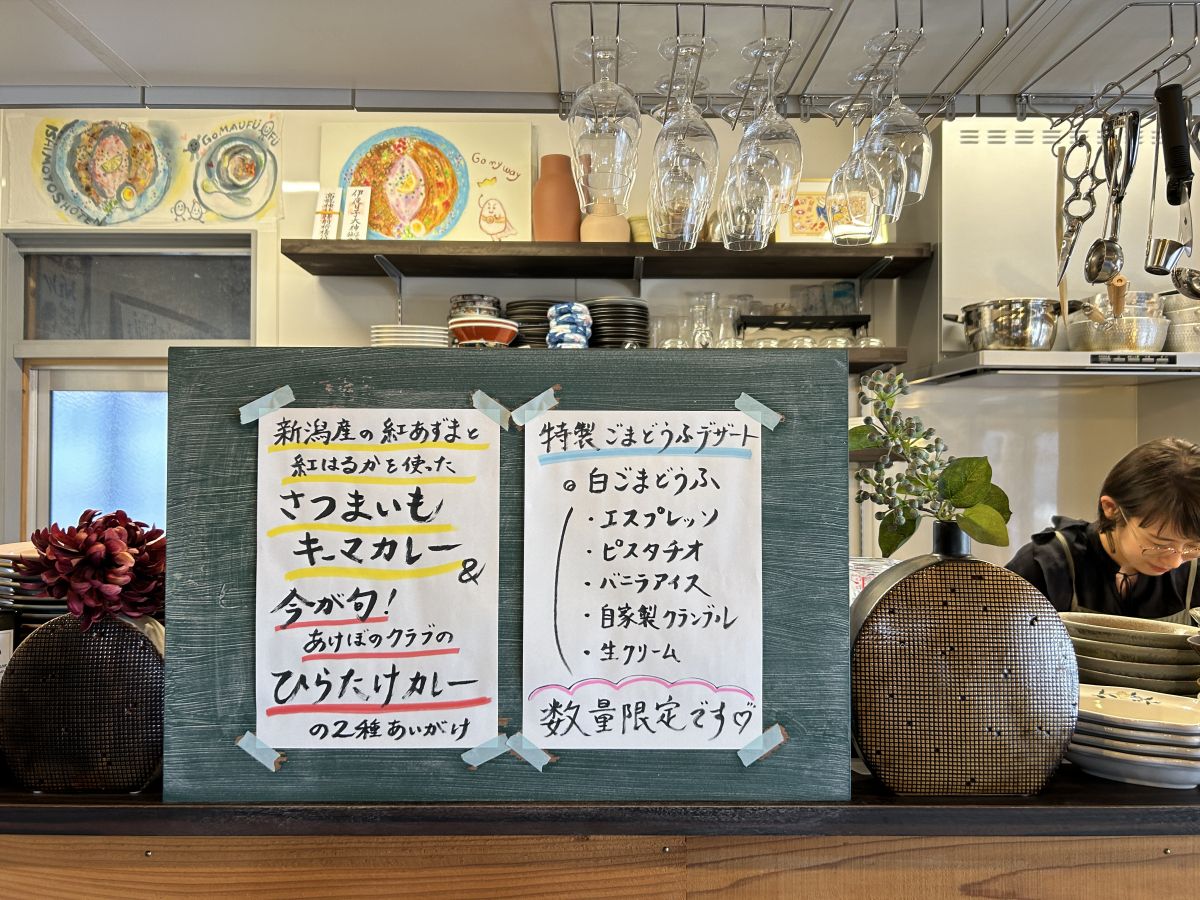 ISHIMOTO SHOTEN
GOMAUFU
Go my way
新潟産の紅あずまと
紅はるかを使った
さつまいも
キーマカレー
&
今が旬!
あけぼのクラブの
ひらたけカレー
の2種あいがけ
特製ごまどうふデザート
◎白ごまどうふ
・エスプレッソ
・ピスタチオ
・バニラアイス
・自家製クランブル
・生クリーム
数量限定です♡